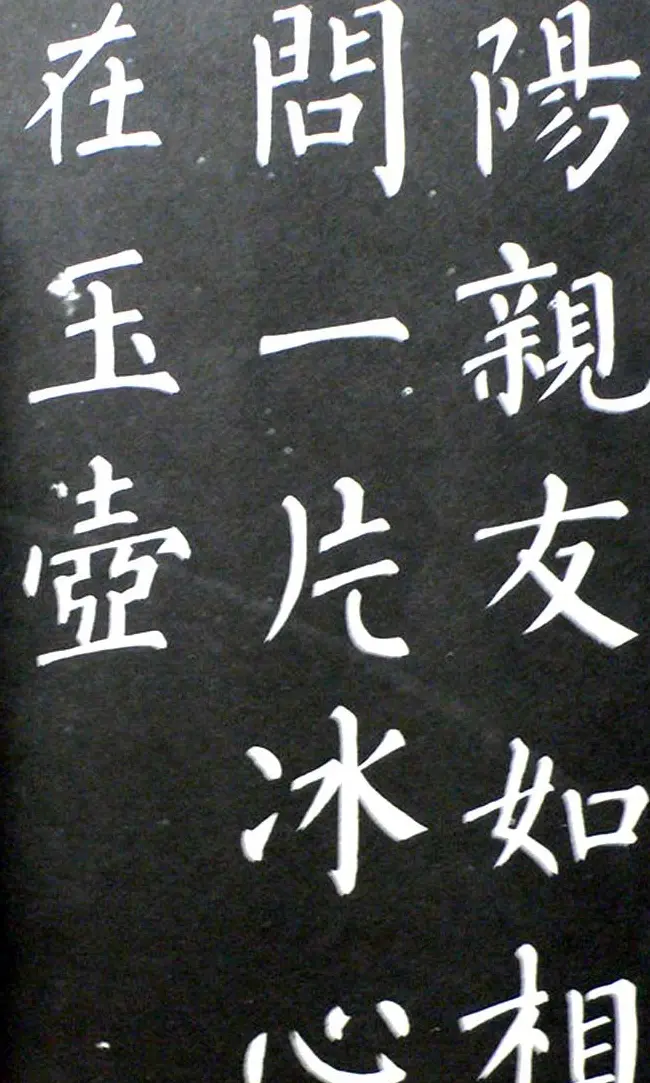 陽親友如相
問一片冰心
在玉壺